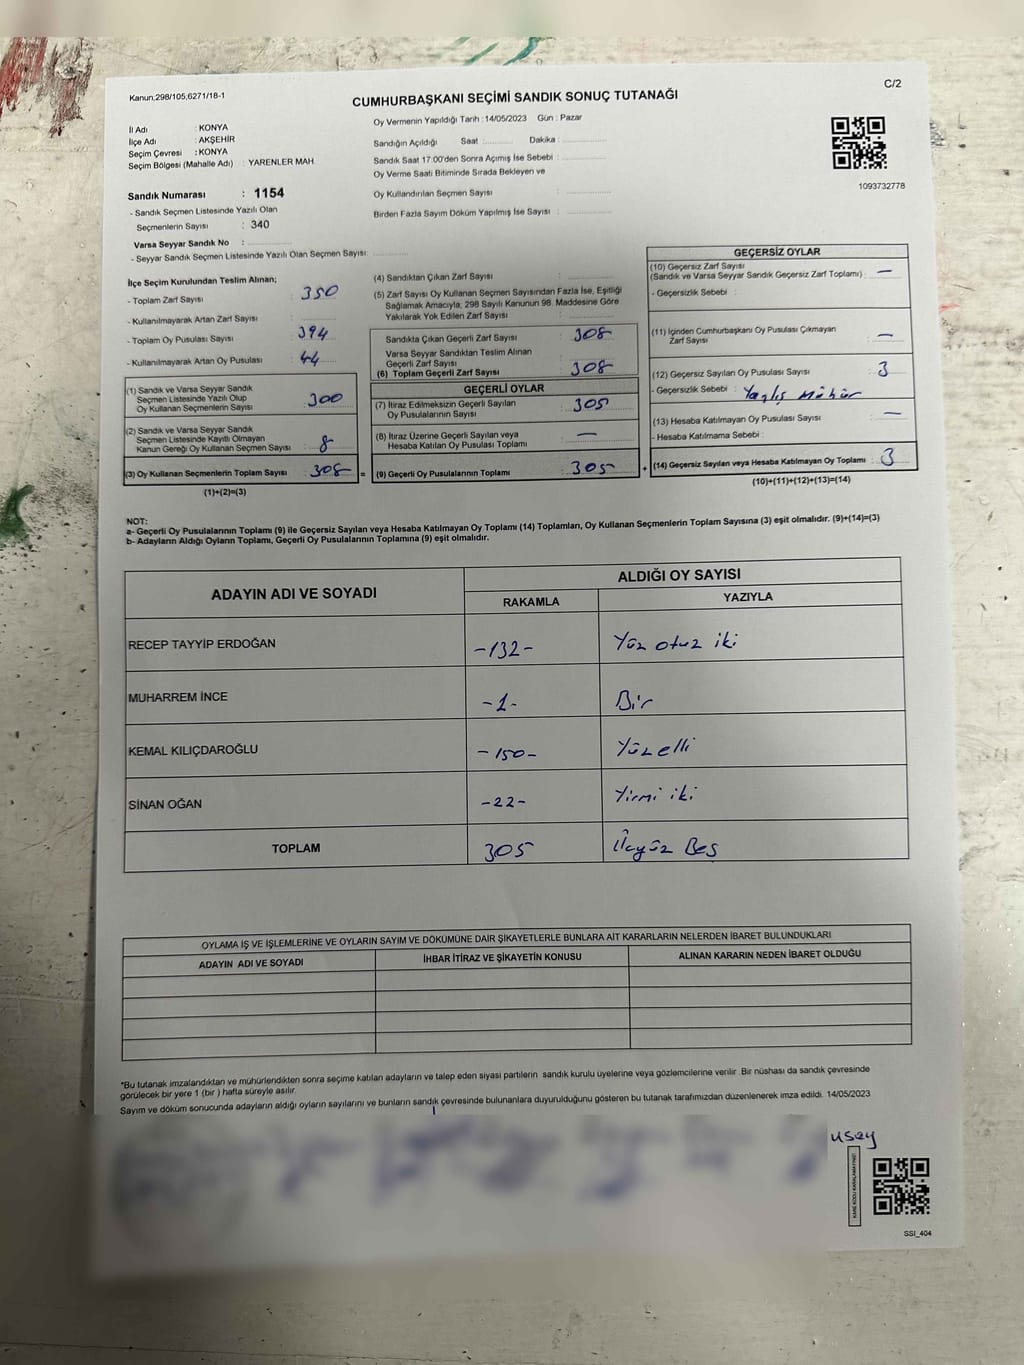 Kanun;298/105;6271/18-1
C/2
CUMHURBAŞKANI SEÇİMİ SANDIK SONUÇ TUTANAĞI
Oy Vermenin Yapıldığı Tarih : 14/05/2023 Gün : Pazar
İl Adı : KONYA
İlçe Adı : AKŞEHİR
Seçim Çevresi : KONYA
Seçim Bölgesi (Mahalle Adı) : YARENLER MAH
Sandığın Açıldığı Saat : Dakika :
Sandık Saat 17:00'den Sonra Açımış İse Sebebi :
Oy Verme Saati Bitiminde Sırada Bekleyen ve
Oy Kullandırılan Seçmen Sayısı :
Birden Fazla Sayım Döküm Yapılmış İse Sayısı :
1093732778
Sandık Numarası : 1154
- Sandık Seçmen Listesinde Yazılı Olan
Seçmenlerin Sayısı : 340
Varsa Seyyar Sandık No :
- Seyyar Sandık Seçmen Listesinde Yazılı Olan Seçmen Sayısı:
İlçe Seçim Kurulundan Teslim Alınan;
- Toplam Zarf Sayısı : 350
- Kullanılmayarak Artan Zarf Sayısı :
- Toplam Oy Pusulası Sayısı : 394
- Kullanılmayarak Artan Oy Pusulası : 44
(1) Sandık ve Varsa Seyyar Sandık
Seçmen Listesinde Yazılı Olup
Oy Kullanan Seçmenlerin Sayısı : 300
(2) Sandık ve Varsa Seyyar Sandık
Seçmen Listesinde Kayıtlı Olmayan
Kanun Gereği Oy Kullanan Seçmen Sayısı : 8
(3) Oy Kullanan Seçmenlerin Toplam Sayısı : 308 =
(1)+(2)=(3)
(4) Sandıktan Çıkan Zarf Sayısı :
(5) Zarf Sayısı Oy Kullanan Seçmen Sayısından Fazla İse, Eşitliği
Sağlamak Amacıyla, 298 Sayılı Kanunun 98. Maddesine Göre
Yakılarak Yok Edilen Zarf Sayısı :
Sandıkta Çıkan Geçerli Zarf Sayısı : 308
Varsa Seyyar Sandıktan Teslim Alınan
Geçerli Zarf Sayısı :
(6) Toplam Geçerli Zarf Sayısı : 308
GEÇERLİ OYLAR
(7) İtiraz Edilmeksizin Geçerli Sayılan
Oy Pusulalarının Sayısı : 305
(8) İtiraz Üzerine Geçerli Sayılan veya
Hesaba Katılan Oy Pusulası Toplamı : —
(9) Geçerli Oy Pusulalarının Toplamı : 305 +
GEÇERSİZ OYLAR
(10) Geçersiz Zarf Sayısı
(Sandık ve Varsa Seyyar Sandık Geçersiz Zarf Toplamı) : —
- Geçersizlik Sebebi :
(11) İçinden Cumhurbaşkanı Oy Pusulası Çıkmayan
Zarf Sayısı : —
(12) Geçersiz Sayılan Oy Pusulası Sayısı : 3
- Geçersizlik Sebebi : Yanlış Mühür
(13) Hesaba Katılmayan Oy Pusulası Sayısı : —
- Hesaba Katılmama Sebebi :
(14) Geçersiz Sayılan veya Hesaba Katılmayan Oy Toplamı : 3
(10)+(11)+(12)+(13)=(14)
NOT:
a- Geçerli Oy Pusulalarının Toplamı (9) ile Geçersiz Sayılan veya Hesaba Katılmayan Oy Toplamı (14) Toplamları, Oy Kullanan Seçmenlerin Toplam Sayısına (3) eşit olmalıdır. (9)+(14)=(3)
b- Adayların Aldığı Oyların Toplamı, Geçerli Oy Pusulalarının Toplamına (9) eşit olmalıdır.
ADAYIN ADI VE SOYADI
ALDIĞI OY SAYISI
RAKAMLA YAZIYLA
RECEP TAYYİP ERDOĞAN -132- Yüz otuz iki
MUHARREM İNCE -1- Bir
KEMAL KILIÇDAROĞLU -150- Yüzelli
SİNAN OĞAN -22- Yirmi iki
TOPLAM 305 Üçyüz Beş
OYLAMA İŞ VE İŞLEMLERİNE VE OYLARIN SAYIM VE DÖKÜMÜNE DAİR ŞİKAYETLERLE BUNLARA AİT KARARLARIN NELERDEN İBARET BULUNDUKLARI
ADAYIN ADI VE SOYADI İHBAR İTİRAZ VE ŞİKAYETİN KONUSU ALINAN KARARIN NEDEN İBARET OLDUĞU
*Bu tutanak imzalandıktan ve mühürlendikten sonra seçime katılan adayların ve talep eden siyasi partilerin sandık kurulu üyelerine veya gözlemcilerine verilir .Bir nüshası da sandık çevresinde
görülecek bir yere 1 (bir ) hafta süreyle asılır.
Sayım ve döküm sonucunda adayların aldığı oyların sayılarını ve bunların sandık çevresinde bulunanlara duyurulduğunu gösteren bu tutanak tarafımızdan düzenlenerek imza edildi. 14/05/2023
usey
KARE KODU KARALAMAYINIZ!
SSI_404